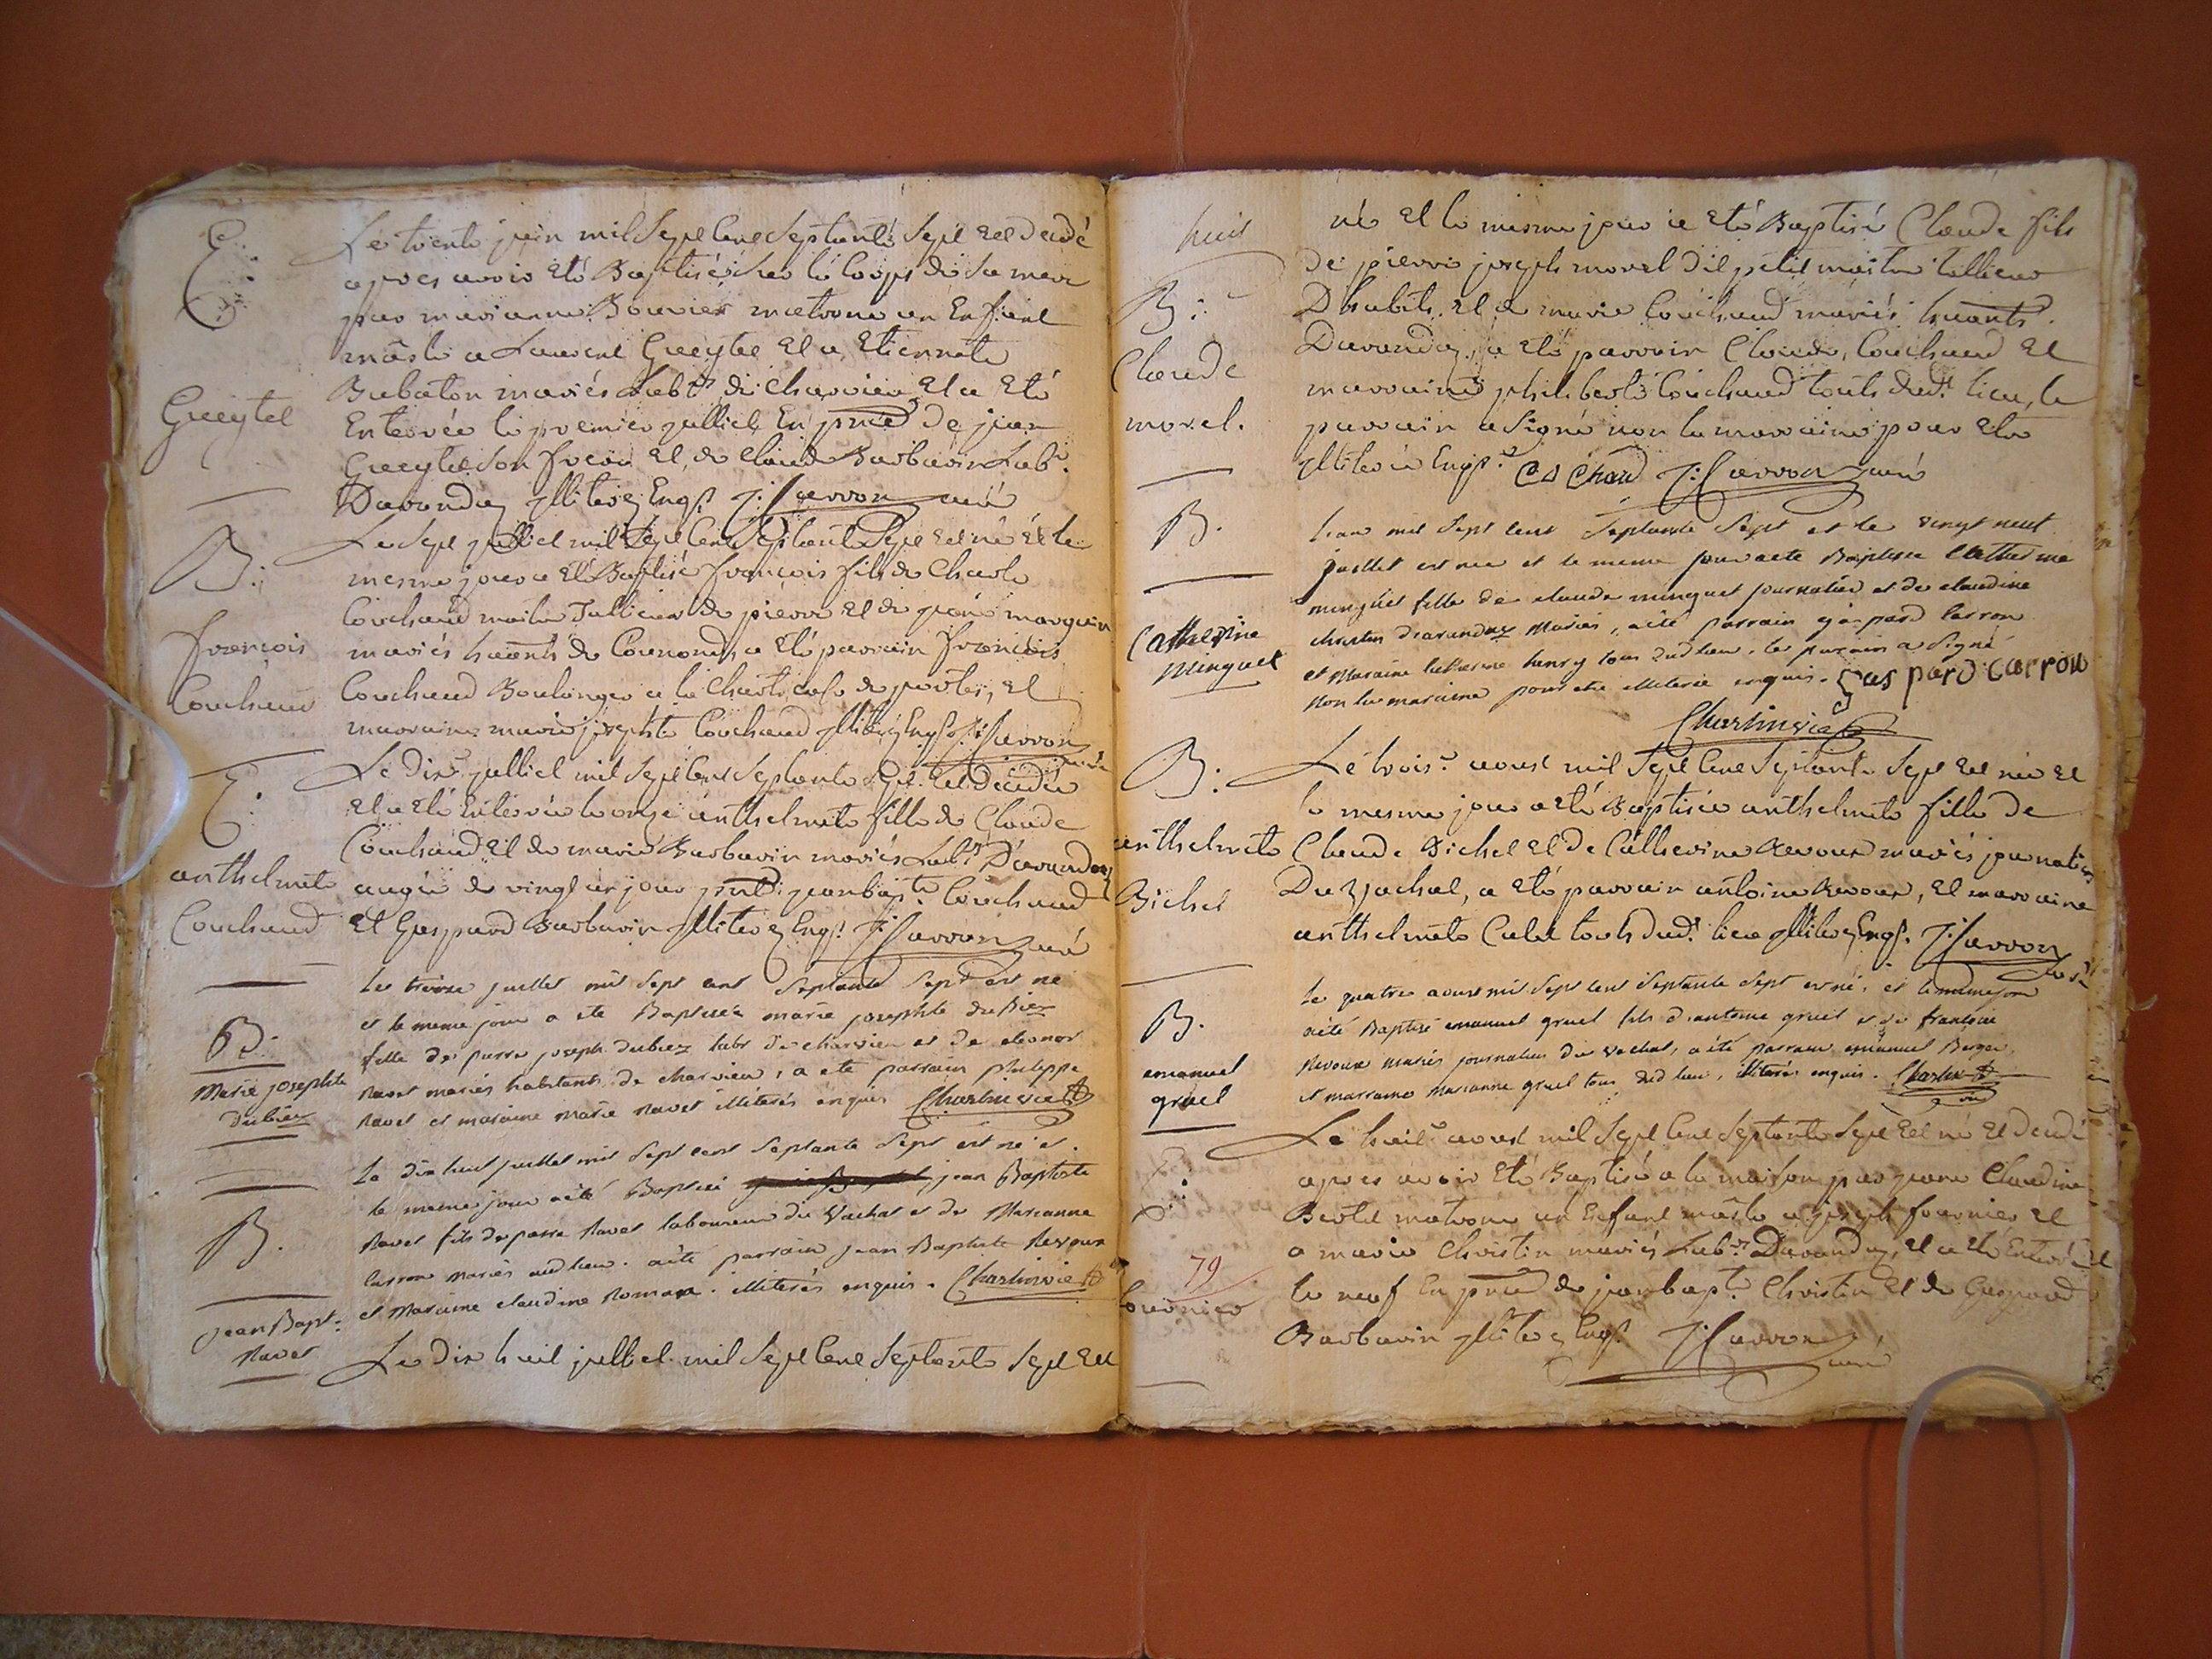 E.
Le trente juin mil Sept Cent Septante Sept Est decedé
apres avoir Eté Baptisé sur le corps de sa mere
par marianne Bouvier matrone un Enfant
mâsle a Laurent Gueytel Et a Etiennete
Babaton mariés Labrs de charvieu Et a Eté
Gueytel
Enterrée le premier julliet En pnce de jean
Gueytel son frere Et de Claude Barbarin Labr
Davanday illiterez Enqs J: Carron curé
B.
Le Sept julliet mil Sept Cent Septante Sept Est né Et le
mesme jour a Eté Baptisé françois fils de Charle
Couchaud maitre Tallieur de pierre Et de jeane marguin
françois
mariés hants de Cournond, a Eté parrain françois
Couchaud
Couchaud Boulanger a la Chartreuse de portes, Et
marraine marie josephte Couchaud illiterez Enqs J: Carron
curé
E.
Le dixe julliet mil Sept Cent Septante Sept Est decedée
Et a Eté Enterrée le onze anthelmete fille de Claude
Couchaud Et de marie Barbarin mariés Labrs Davanday
anthelmete
augée de vingt un jour pnts jeanbapte Couchaud
Couchaud
Et Gaspard Barbarin illiterez Enqs J: Carron curé
Le treize juillet mil sept cent septante sept est né
et le meme jour a ete Baptisée marie josephte duBiez
B.
fille de pierre joseph dubiez labr de charvieu et de eleonor
Marie josephte
Ravet mariés habitants de charvieu, a ete parrain philippe
dubiez
Ravet et maraine marie Ravet illiterés enquis Charlin vic
Le dix huit juillet mil sept cent septante sept est né et
le meme jour a été Baptisé jean Baptiste
B.
Ravet fils de pierre Ravet laboureur du Vachat et de Marianne
Carron mariés aud lieu. a été parrain jean Baptiste Revoux
et Maraine claudine Roman. illiterés enquis. Charlin vic
jean Bapt.
Ravet
Le dix huit julliet mil Sept Cent Septante Sept Est
huit
né Et le mesme jour a Eté Baptisé Claude fils
de pierre joseph morel dit petit maitre tallieur
B.
D'habits, Et de marie Couchaud mariés hants
Claude
Davanday, a Eté parrain Claude Couchaud Et
morel.
marraine philiberte Couchaud touts dudt lieu, le
parrain a signé non la marraine pour Etre
illiterée Enqse Co Chaud J: Carron curé
B.
L'an mil sept cent septante sept et le vingt neuf
juillet est née et le meme jour a ete Baptisée Catherine
minguet fille de claude minguet journalier et de claudine
Catherine
christin d'arandaz Mariés, a été parrain gaspard Carron
Minguet
et Maraine Catherine henry tous dud lieu. le parrain a signé
non la maraine pour etre illiterée enquis. Gaspard Carron
Charlin vic
B.
Le troise aoust mil Sept Cent Septante Sept Est née Et
le mesme jour a Eté Baptisée anthelmete fille de
anthelmete
Claude Bichel Et de Catherine Revoux mariés journaliers
Bichel
Du Vachat, a Eté parrain antoine Revoux, Et marraine
anthelmete Calat touts dudt lieu illiterez Enqs. J: Carron
curé
Le quatre aoust mil sept cent septante sept est né, et le meme jour
B.
a été Baptisé emanuel gruel fils d'antoine gruel et de francoise
emanuel
Revoux mariés journaliers du Vachat, a été parrain emanuel Berger
gruel
et marraine marianne gruel tous dud lieu, illiterés enquis. Charlin
vic
Le huite aoust mil Sept Cent Septante Sept Est né Et decedé
E.
apres avoir Eté Baptisé a la maison par jeane Claudine
Bertet matrone un Enfant mâsle a joseph fournier Et
a marie Christin mariés Labrs Davanday, Et a Eté Enterré
79
fournier
le neuf En pnce de jeanbapte Christin Et de Gaspard
Barbarin illiterez Enqs J: Carron
curé